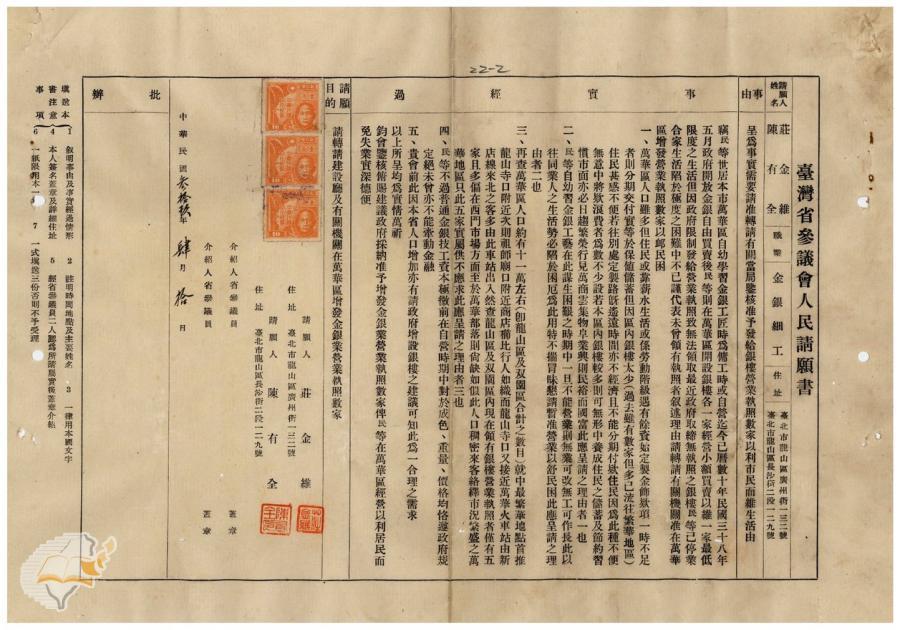 22-2
臺灣省參議會人民請願書
請願人姓名
莊金維
陳有全
職業
金銀細工
住址
臺北市龍山區廣州街一三二號
臺北市龍山區長沙街二段一二九號
事由
呈為事實需要請准轉請有關當局鑒核准予發給銀樓營業執照數家以利市民而維生活由
事實經過
竊民等世居本市萬華區自幼學習金銀工匠時為傭工時或自營迄今已曆數十年民國三十八年
五月政府開放金銀自由買賣後民等則在萬華區開設銀樓各一家經營小額買賣以維一家最低
限度之生活但因政府限制發給營業執照致無法領取最近政府取締無執照之銀樓民等已停業
合家生活陷於極度之困難中不已謹代表未曾領有執照者叙述理由請轉請有關機關准在萬華
區增發營業執照數家以卹民困
一、萬華區人口雖多但住民或靠薪水生活或係勞動階級遇有餘資始定製金飾欵項一時不足
者則分期交付實等於保值儲蓄但因區內銀樓太少（過去雖有數家但多已流往繁華地區）
住民甚感不便若往別處定製路既遙遠時間亦不經濟且不能分期付欵住民因為此種不便
無意中將欵浪費者為數不少設若本區內銀樓較多則可無形中養成住民之儲蓄及節約習
慣市面亦必日趨繁榮行見萬商雲集物阜業興則民裕而國富此應呈請之理由者一也
二、民等自幼習金銀工藝在此謀生困艱之時期中一旦不能營業則無業可改無工可作長此以
往同業人之生活勢必陷於困厄為此用特不揣冒昧懇請暫准營業以舒民困此應呈請之理
由者二也
三、再查萬華區人口約有十一萬左右（卽龍山區及双園區合計之數目）就中最繁華地點首推
龍山寺口附近次則祖師廟口附近商店櫛比行人如織而龍山寺口又接近萬華火車站由新
店線來北之客多由此車站出入然查龍山區及双園區內現在領有銀樓營業執照者僅有五
家且多偏在西門市場方面至於萬華部落則尚缺如似此人口稠密來客絡繹市況繁盛之萬
華地區只此五家實屬供不應求此應呈請之理由者三也
四、民等不過普通金銀技工資本極微前在自營時期中對於成色、重量、價格均恪遵政府規
定絕未曾亦不能牽動金融
五、貴會前此因本省人口增加亦有請政府增設銀樓之建議可知此為一合理之需求
以上所呈均為實情萬祈
鈞會鑒核俯賜建議政府採納准予增發金銀業營業執照數家俾民等在萬華區經營以利居民而
免失業實深德便
請願目的
請轉請建設廳及有關機關在萬華區增發金銀業營業執照數家
請願人　莊金維
住址　臺北市龍山區廣州街一三二號
請願人　陳有全
住址　臺北市龍山區長沙街二段一二九號
介紹人省參議員　蓋章
介紹人省參議員　蓋章
中華民國叁拾玖年肆月拾日
批辦
填敘本書注意事項
1　叙明事由及事實經過情形　2　註明時間地點及主要姓名　3　一律用本國文字
4　本人簽名蓋章及詳細住址　5　經省參議員二人認為所請屬實簽蓋章介紹
6　一紙限用本一　7　一式填送三份否則不予受理